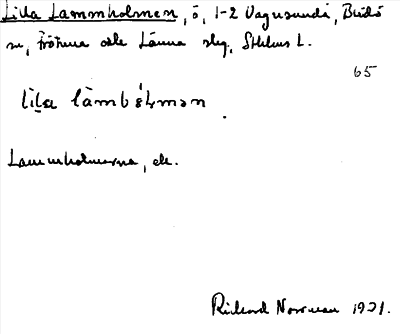 Lilla Lammholmen, ö, 1-2 Vagnsunda, Blidö
sn, Frötuna och Länna slg, Sthlms L.
65
Lammholmarna, ek.
Richard Norrman 1931.